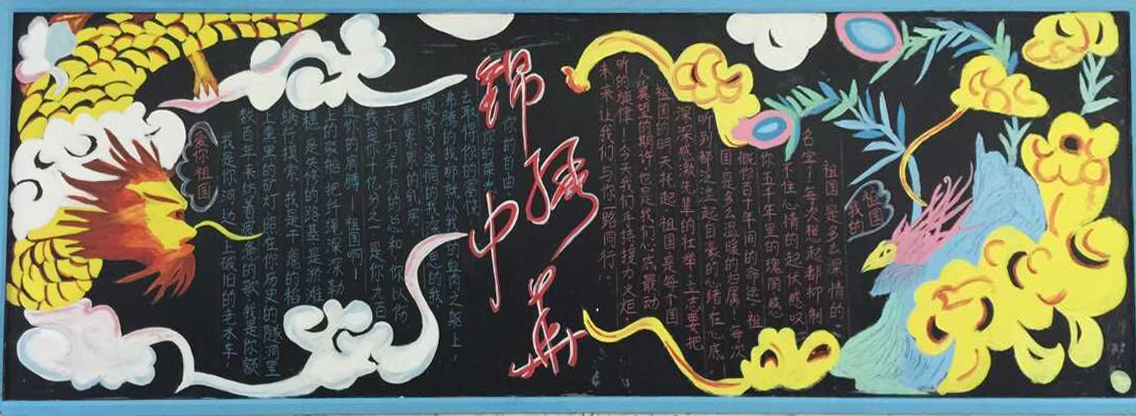 爱你祖国
我是你河边上破旧的老水车,
数百年来纺着疲惫的歌 我是你额
上熏黑的矿灯 照在你历史的隧洞里
蜗行摸索 我是干瘪的稻
穗 是失修的路基 是淤滩
上的驳船 把纤绳深深勒
进你的肩膊——祖国啊!
我是你十亿分之一 是你九百
六十万平方的总和 你以伤
痕累累的乳房
喂养了迷惘的我
沸腾的我 那就从我的血肉之躯上,
去取得你的富饶
你的自由
锦绣中华
我的祖国
祖国是多么深情的
字!每次想起都抑制
不住心情的起伏 感叹
你五千年里的瑰丽 感
慨你百年间的命运 祖
国是多么温暖的归属!每次
听到都泛起自豪的心绪 在心底
深深感激先辈的壮举 立志要把
祖国的明天托起 祖国是每个国
人寄望的期许,也是我们心底最动
听的旋律!今天我们手持接力火炬
未来 让我们与你一路同行!